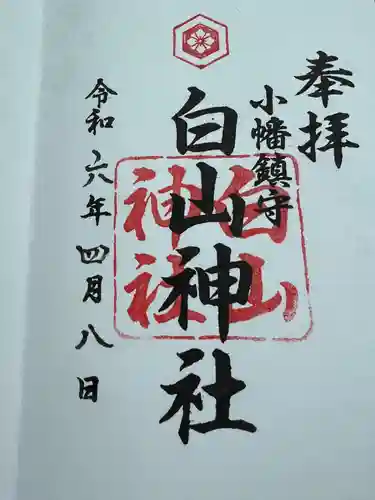 奉拝
小幡鎮守
白山神社
令和六年四月八日
白山
神社